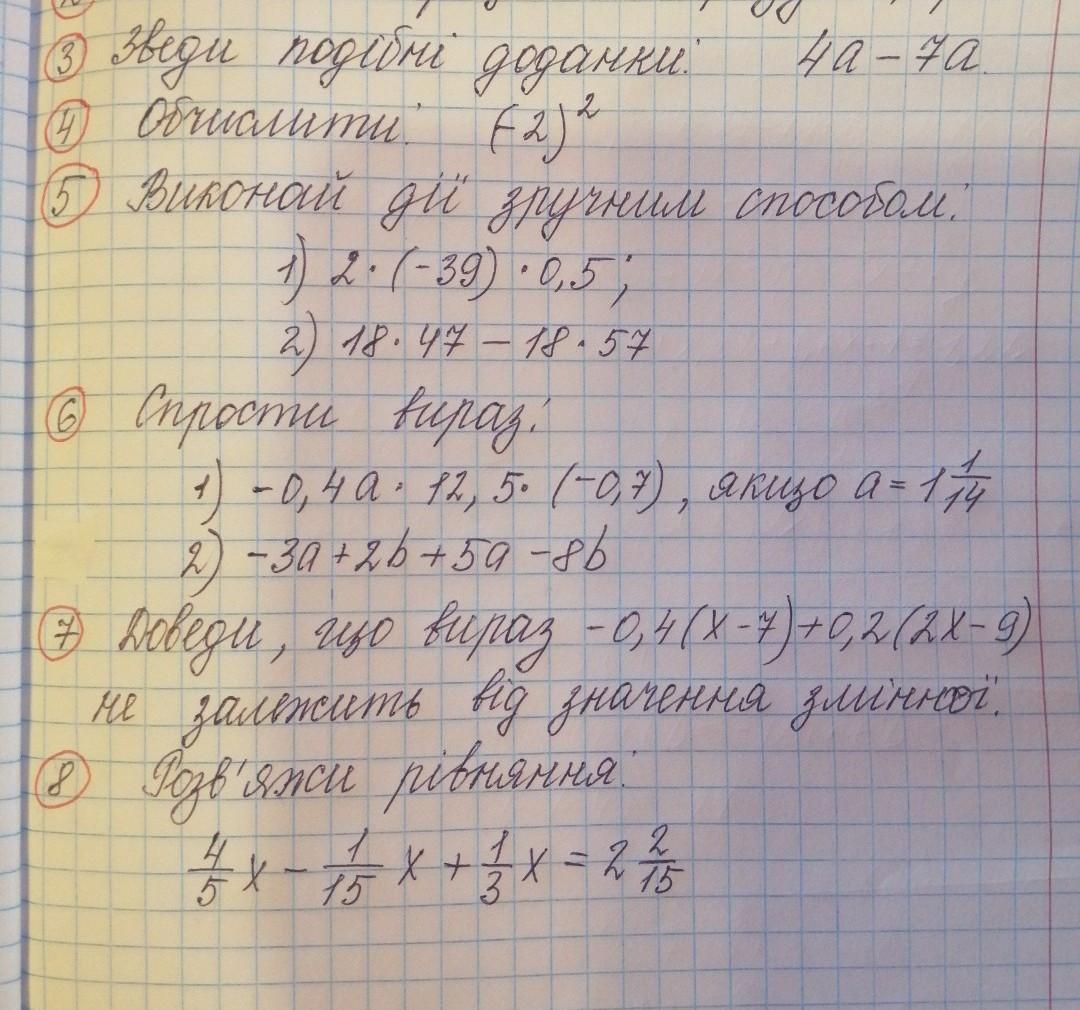 ③ Зведи подібні доданки: 4a – 7a.
④ Обчислити: (-2)²
⑤ Виконай дії зручним способом:
1) 2·(-39)·0,5;
2) 18·47 – 18·57
⑥ Спрости вираз:
1) -0,4a·12,5·(-0,7), якщо a = 1 1/14
2) -3a+2b+5a-8b
⑦ Доведи, що вираз -0,4(x-7)+0,2(2x-9)
не залежить від значення змінної.
⑧ Розв'яжи рівняння:
4/5 x – 1/15 x + 1/3 x = 2 2/15